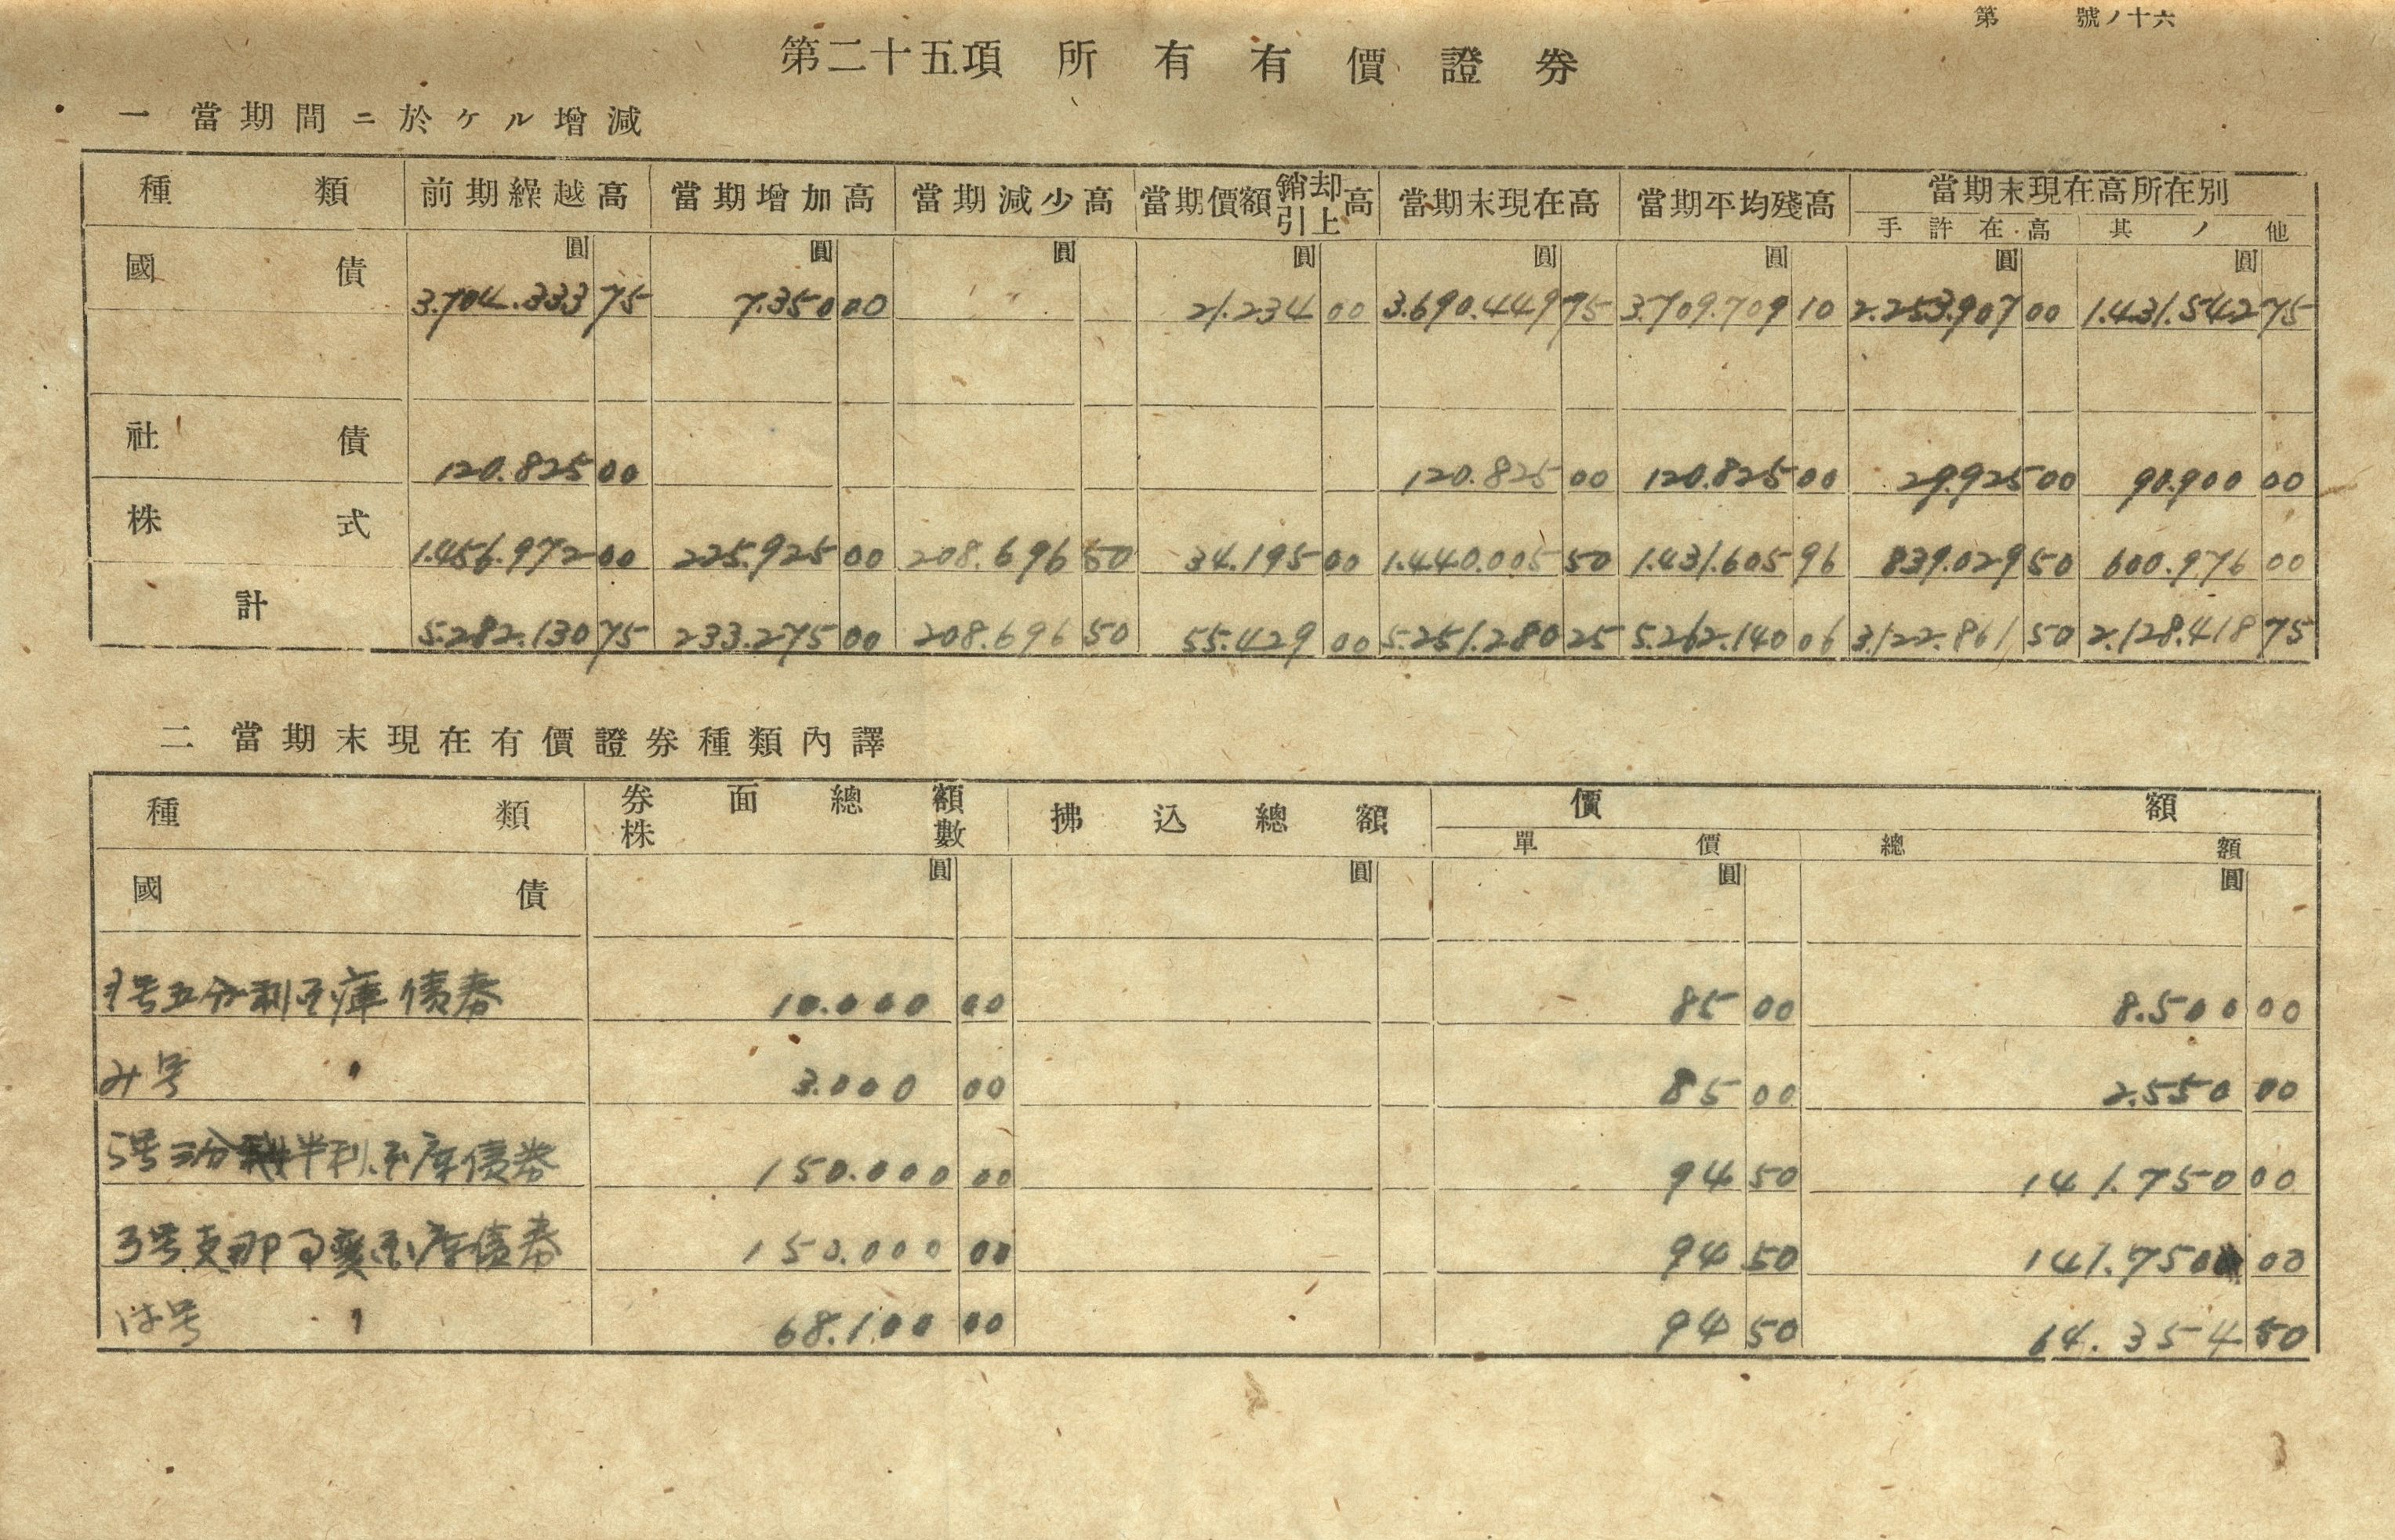 第 號ノ十六
第二十五項 所有有價證券
一 當期間ニ於ケル增減
種類 前期繰越高 當期增加高 當期減少高 當期價額銷却引上高 當期末現在高 當期平均殘高 當期末現在高所在別
手許在高 其ノ他
國債 圓 圓 圓 圓 圓 圓 圓 圓
3.704.333 75 7.350 00 21.234 00 3.690.449 75 3.709.709 10 2.253.907 00 1.431.542 75
社債 120.825 00 120.825 00 120.825 00 29.925 00 90.900 00
株式 1.456.972 00 225.925 00 208.696 50 34.195 00 1.440.005 50 1.431.605 96 839.029 50 600.976 00
計 5.282.130 75 233.275 00 208.696 50 55.429 00 5.251.280 25 5.262.140 06 3.122.861 50 2.128.418 75
二 當期末現在有價證券種類內譯
種類 券面總額 株數 拂込總額 價額
單價 總額
國債 圓 圓 圓 圓
号五分利国庫債券 10.000 00 85 00 8.500 00
み号 〃 3.000 00 85 00 2.550 00
号三分半利国庫債券 150.000 00 94 50 141.750 00
号支那事変国庫債券 150.000 00 94 50 141.750 00
は号 〃 68.100 00 94 50 64.354 50